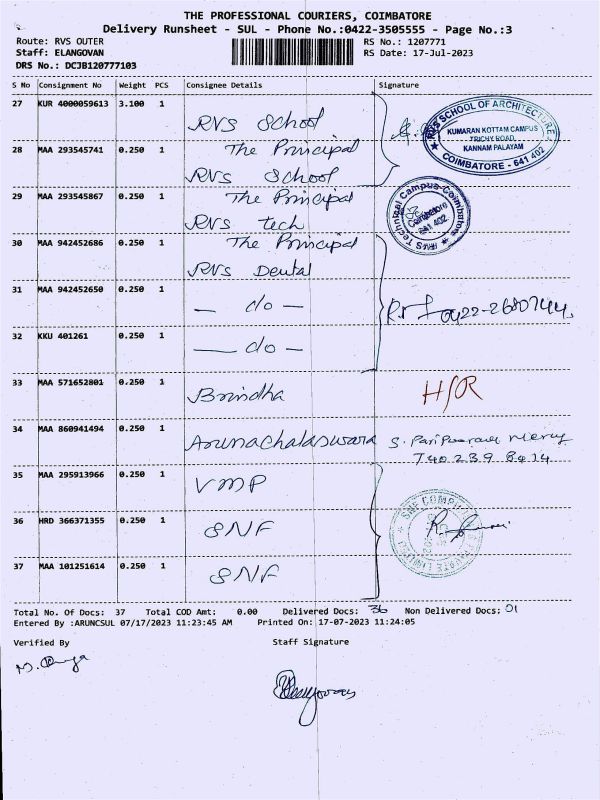 THE PROFESSIONAL COURIERS, COIMBATORE
Delivery Runsheet - SUL - Phone No.:0422-3505555 - Page No.:3
Route: RVS OUTER
RS No.: 1207771
Staff: ELANGOVAN
RS Date: 17-Jul-2023
DRS No.: DCJB120777103
S No Consignment No Weight PCS Consignee Details Signature
27 KUR 4000059613 3.100 1
RVS School
RVS SCHOOL OF ARCHITECTURE
KUMARAN KOTTAM CAMPUS
TRICHY ROAD,
KANNAM PALAYAM
COIMBATORE - 641 402
28 MAA 293545741 0.250 1 The Principal
RVS School
29 MAA 293545867 0.250 1 The Principal
RVS tech
RVS Technical Campus-Coimbatore
Coimbatore
641 402
30 MAA 942452686 0.250 1 The Principal
RVS Dental
31 MAA 942452650 0.250 1
— do —
0422-2680744
32 KKU 401261 0.250 1
— do —
33 MAA 571652801 0.250 1
Brindha
H/R
34 MAA 860941494 0.250 1
Arunachalaswara S.
35 MAA 295913966 0.250 1
VMP
36 HRD 366371355 0.250 1
SNF
SNF COMPUTE PRIVATE LIMITED
37 MAA 101251614 0.250 1
SNF
Total No. Of Docs: 37 Total COD Amt: 0.00 Delivered Docs: 36 Non Delivered Docs: 01
Entered By :ARUNCSUL 07/17/2023 11:23:45 AM Printed On: 17-07-2023 11:24:05
Verified By Staff Signature